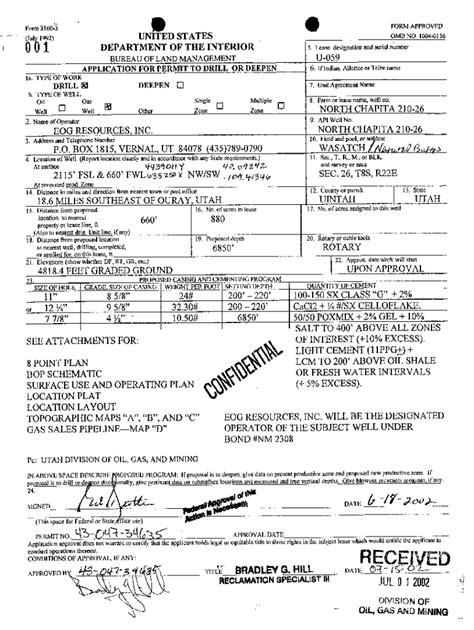 Form 3160-3
(July 1992)
001
UNITED STATES
DEPARTMENT OF THE INTERIOR
BUREAU OF LAND MANAGEMENT
APPLICATION FOR PERMIT TO DRILL OR DEEPEN
FORM APPROVED
OMB NO. 1004-0136
5. Lease designation and serial number
U-059
1a. TYPE OF WORK
DRILL DEEPEN
6. If Indian, Allottee or Tribe name
b. TYPE OF WELL
Oil Well Gas Well Other Single Zone Multiple Zone
7. Unit Agreement Name
8. Farm or lease name, well no.
NORTH CHAPITA 210-26
2. Name of Operator
EOG RESOURCES, INC.
9. API Well No.
NORTH CHAPITA 210-26
3. Address and Telephone Number
P.O. BOX 1815, VERNAL, UT 84078 (435)789-0790
10. Field and pool, or wildcat
WASATCH / Natural Buttes
4. Location of Well (Report location clearly and in accordance with any State requirements.)
At surface
2115' FSL & 660' FWL NW/SW
At proposed prod. Zone
11. Sec., T, R., M., or BLK. and survey or area
SEC. 26, T8S, R22E
14. Distance in miles and direction from nearest town or post office
18.6 MILES SOUTHEAST OF OURAY, UTAH
12. County or parish
UINTAH
13. State
UTAH
15. Distance from proposed location to nearest property or lease line, ft.
(Also to nearest drig. Unit line, if any)
660'
16. No. of acres in lease
880
17. No. of acres assigned to this well
18. Distance from proposed location to nearest well, drilling, completed, or applied for, on this lease, ft.
19. Proposed depth
6850'
20. Rotary or cable tools
ROTARY
21. Elevations (show whether DF, RT, GR, etc.)
4818.4 FEET GRADED GROUND
22. Approx. date work will start
UPON APPROVAL
23. PROPOSED CASING AND CEMENTING PROGRAM
SIZE OF HOLE GRADE, SIZE OF CASING WEIGHT PER FOOT SETTING DEPTH QUANTITY OF CEMENT
11" 8 5/8" 24# 200' – 220' 100-150 SX CLASS "G" + 2%
or 12 ¼" 9 5/8" 32.30# 200' – 220' CaCl2 + ¼ #/SX CELLOFLAKE.
7 7/8" 4 ½" 10.50# 6850' 50/50 POXMIX + 2% GEL + 10%
SALT TO 400' ABOVE ALL ZONES
OF INTEREST (+10% EXCESS).
LIGHT CEMENT (11PPG±) +
LCM TO 200' ABOVE OIL SHALE
OR FRESH WATER INTERVALS
(+ 5% EXCESS).
SEE ATTACHMENTS FOR:
8 POINT PLAN
BOP SCHEMATIC
SURFACE USE AND OPERATING PLAN
LOCATION PLAT
LOCATION LAYOUT
TOPOGRAPHIC MAPS "A", "B", AND "C"
GAS SALES PIPELINE—MAP "D"
CONFIDENTIAL
EOG RESOURCES, INC. WILL BE THE DESIGNATED
OPERATOR OF THE SUBJECT WELL UNDER
BOND #NM 2308
Pc: UTAH DIVISION OF OIL, GAS, AND MINING
IN ABOVE SPACE DESCRIBE PROPOSED PROGRAM: If proposal is to deepen, give data on present productive zone and proposed new productive zone. If
proposal is to drill or deepen directionally, give pertinent data on subsurface locations and measured and true vertical depths. Give blowout preventer program, if any.
24.
SIGNED
Federal Approval of this
Action is Necessary
DATE 6-18-2002
(This space for Federal or State office use)
PERMIT NO. 43-047-34635 APPROVAL DATE
Application approval does not warrant to certify that the applicant holds legal or equitable title to those rights in the subject lease which would entitle the applicant to
conduct operations thereon.
CONDITIONS OF APPROVAL, IF ANY:
RECEIVED
APPROVED BY TITLE BRADLEY G. HILL
RECLAMATION SPECIALIST III
DATE 07-15-02
JUL 01 2002
DIVISION OF
OIL, GAS AND MINING